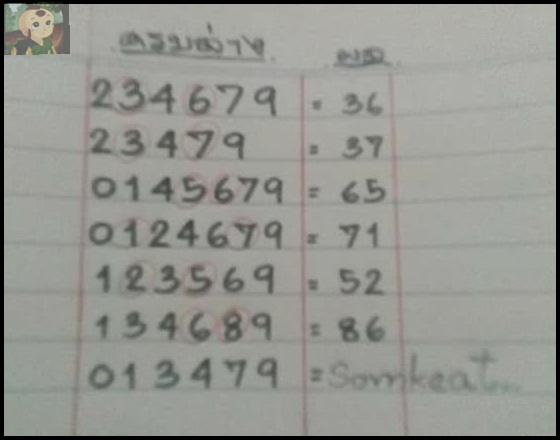 ครบล่าง ผล
234679 = 36
23479 = 37
0145679 = 65
0124679 = 71
123569 = 52
134689 = 86
013479 = Somkeat...